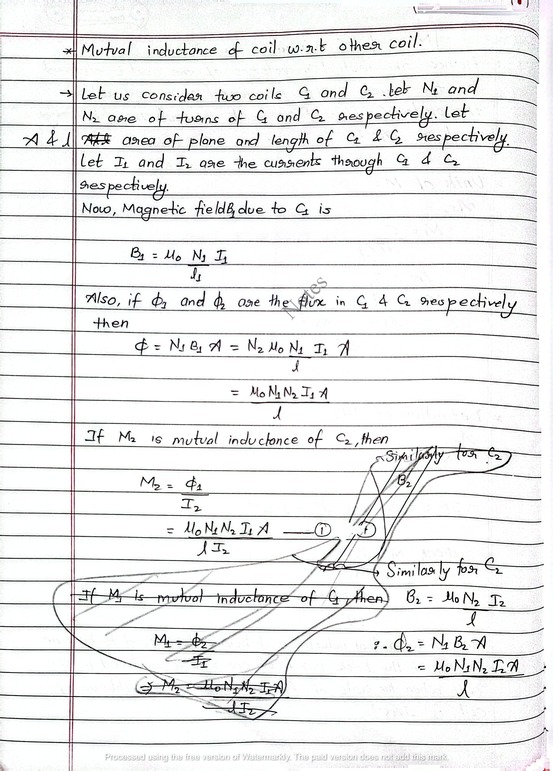 * Mutual inductance of coil w.r.t other coil.
→ Let us consider two coils C1 and C2. Let N1 and
N2 are of turns of C1 and C2 respectively. Let
A & l area of plane and length of C1 & C2 respectively.
Let I1 and I2 are the currents through C1 & C2
respectively.
Now, Magnetic field B1 due to C1 is
B1 = μ0 N1 I1
l1
Also, if ϕ1 and ϕ2 are the flux in C1 & C2 respectively
then
ϕ = N1 B1 A = N2 μ0 N1 I1 A
l
= μ0 N1 N2 I1 A
l
If M2 is mutual inductance of C2, then
Similarly for C2
B2
M2 = ϕ1
I2
= μ0 N1 N2 I1 A — ①
l I2
→ Similarly for C2
If M1 is mutual inductance of C1, then
B2 = μ0 N2 I2
l
M1 = ϕ2
I1
∴ ϕ2 = N1 B2 A
= μ0 N1 N2 I2 A
l
⇒ M2 = μ0 N1 N2 I1 A
l I2
Notes
Processed using the free version of Watermarkly. The paid version does not add this mark.